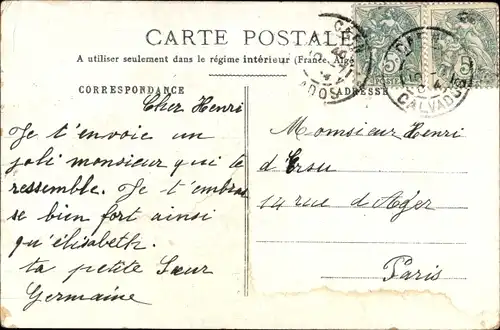 CARTE POSTALE
A utiliser seulement dans le régime intérieur (France, Algé
CORRESPONDANCE
ADRESSE
Cher Henri
Je t'envoie un
joli monsieur qui te
ressemble. Je t'embras
se bien fort ainsi
qu'élisabeth.
ta petite Sœur
Germaine
Monsieur Henri
d'
14 rue d'
Paris
CAEN
CALVADOS
5
5